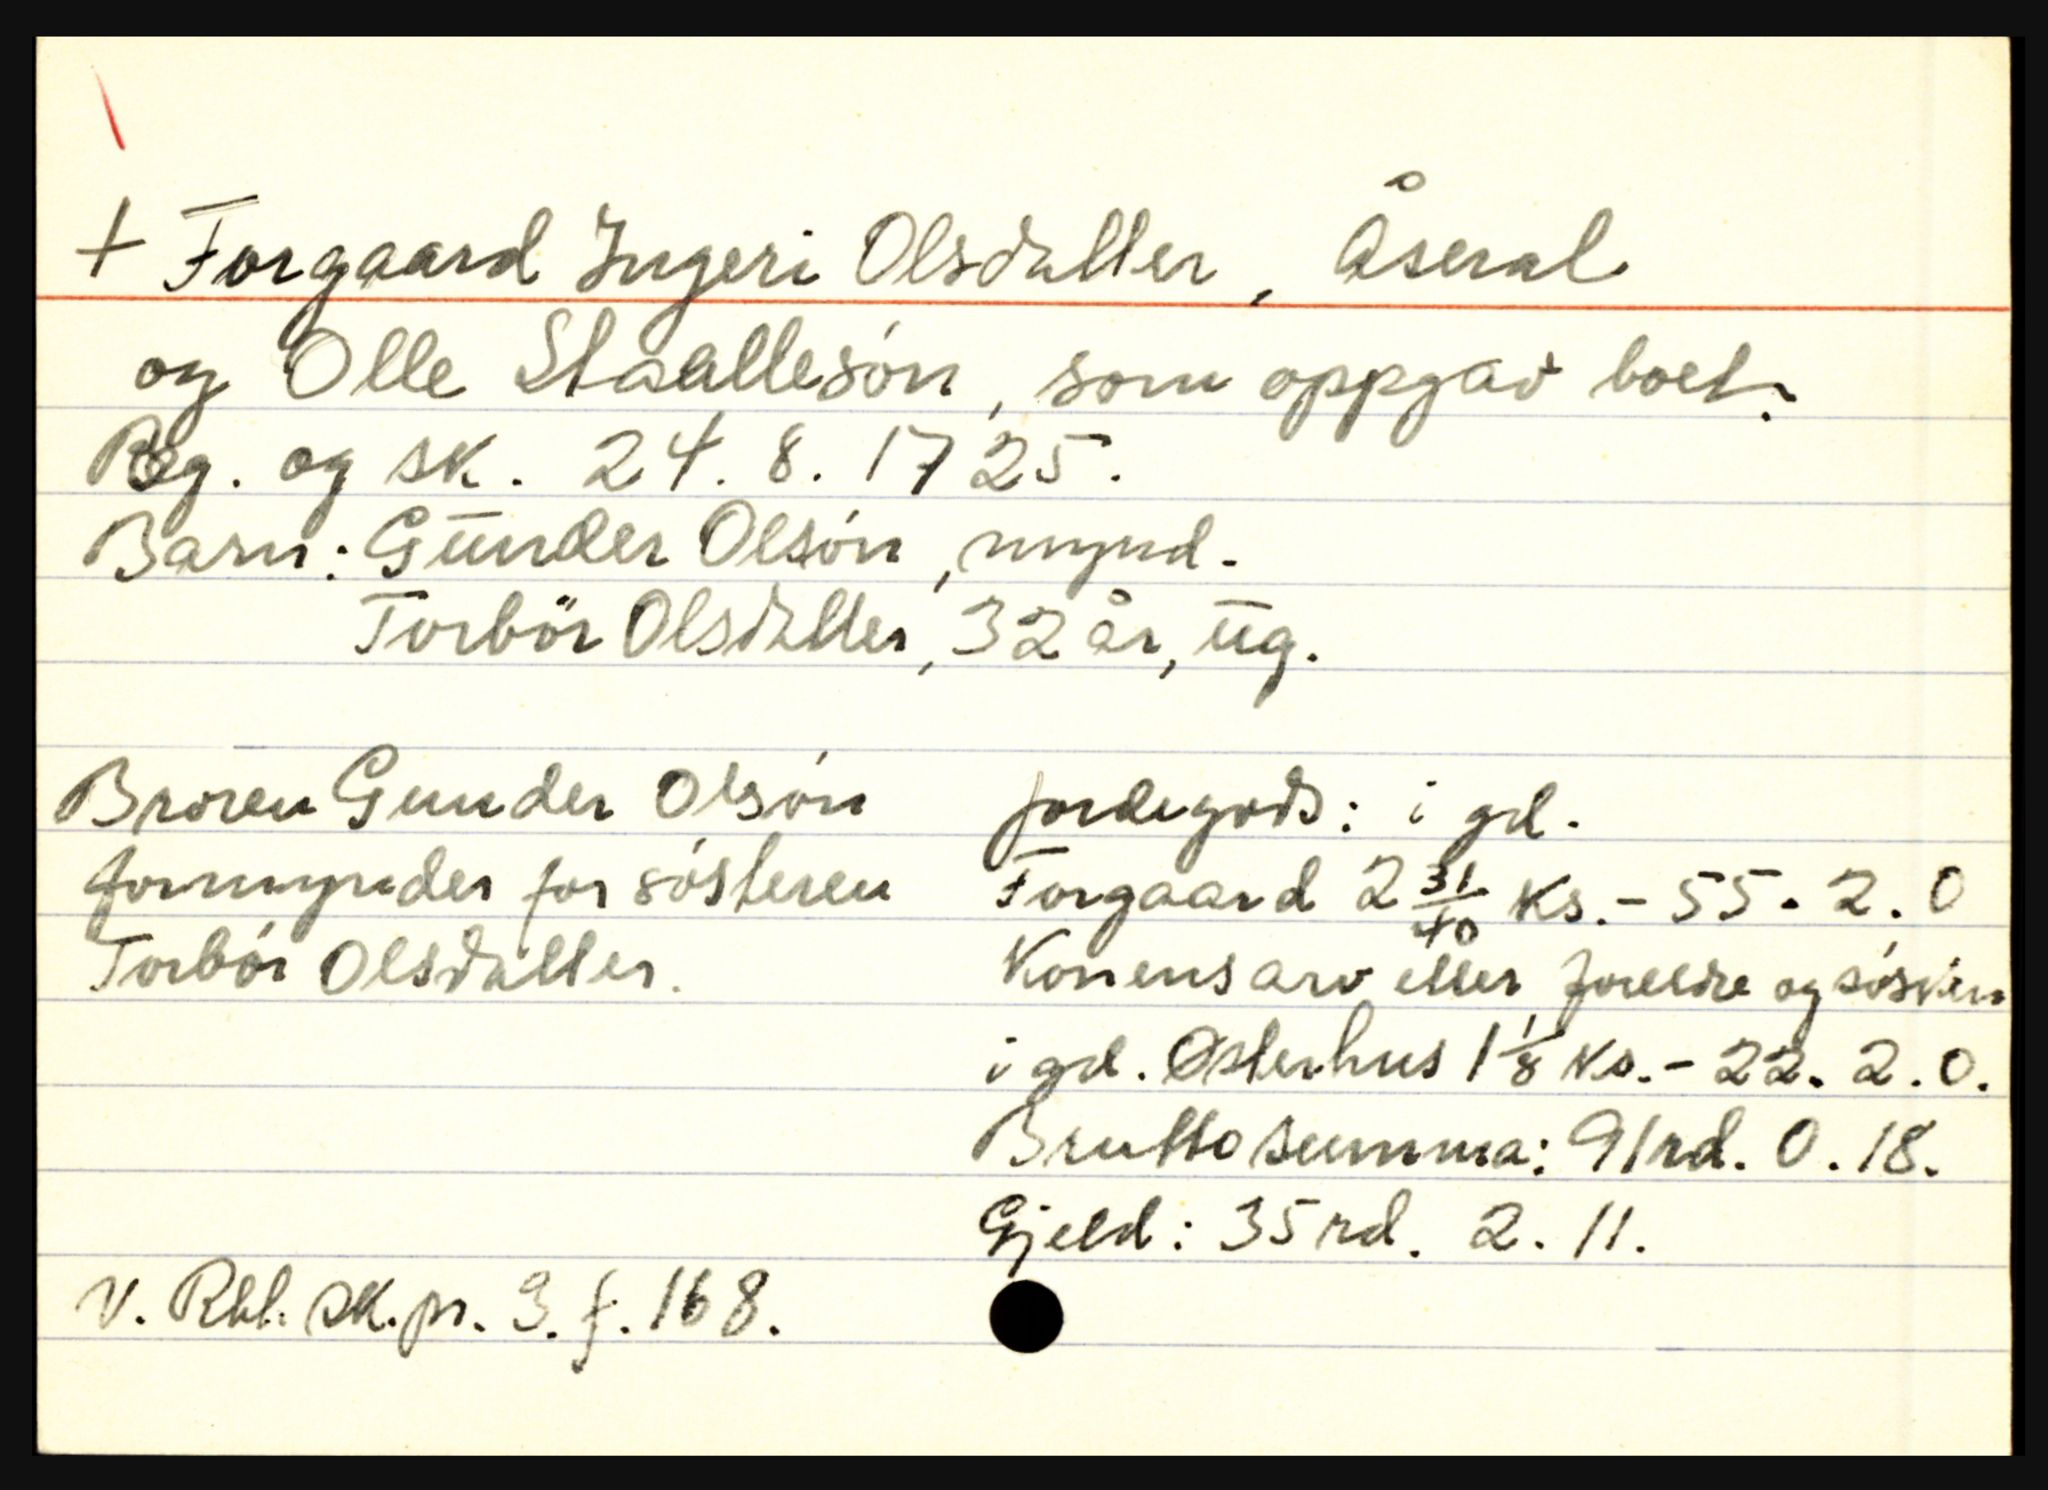 + Forgaard Ingeri Olsdatter, Åseral
og Olle Staallesón, som oppgav boet.
Reg. og sk. 24. 8. 1725.
Barn: Gunder Olsón, mynd.
Torbör Olsdatter, 32 år, ug.
Broren Gunder Olsón
formynder for sósteren
Torbór Olsdatter.
Jordegods: i gd.
Forgaard 2 31/40 ks. - 55. 2. 0
Konens arv etter foreldre og sósken
i gd. Østerhus 1 1/8 ks. - 22. 2. 0.
Brutto summa: 91rd. 0. 18.
Gjeld: 35 rd. 2. 11.
V. Rbl. sk. pr. 3. f. 168.